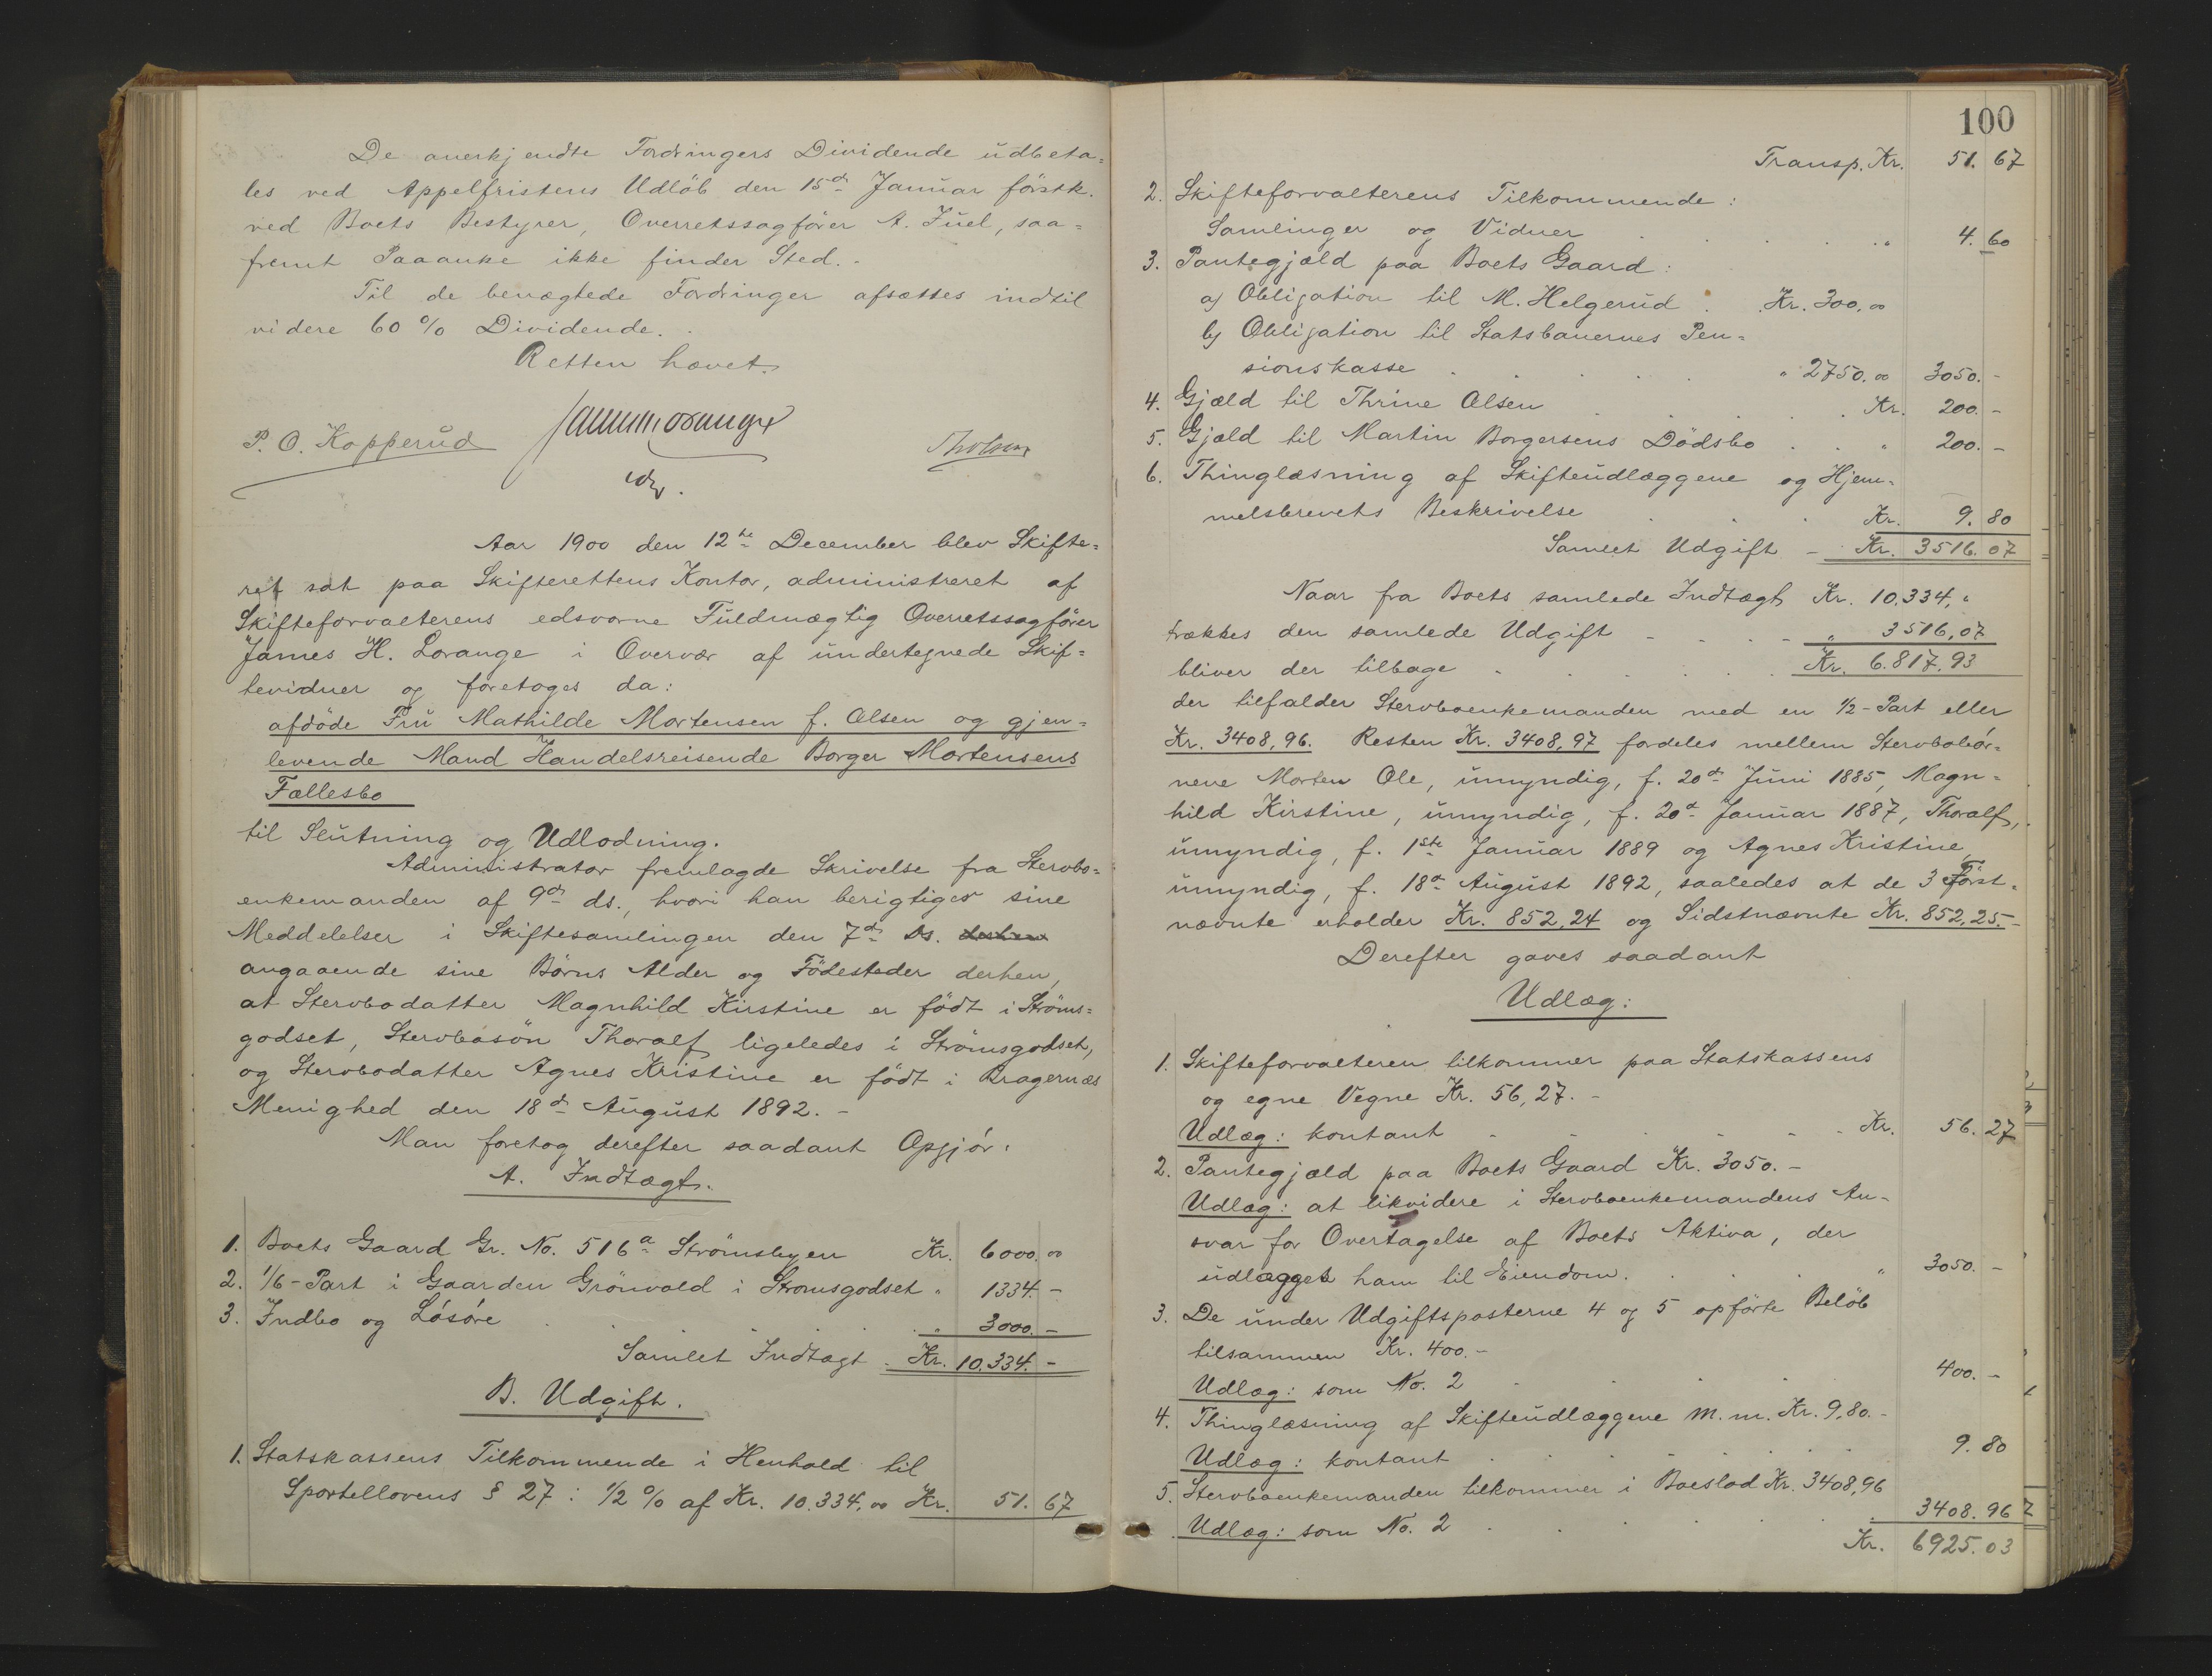 De anerkjendte Fordringers Dividende udbeta=
les ved Appelfristens Udlöb den 15d Januar förstk.
ved Boets Bestyrer, Overretssagförer A. Juel, saa=
fremt Paaanke ikke finder Sted. -
Til de benægtede Fordringer afsættes indtil
videre 60 % Dividende.
Retten hævet.
P. O. Kopperud
Aar 1900 den 12te December blev Skifte=
ret sat paa Skifterettens Kontor, administreret af
Skifteforvalterens edsvorne Fuldmægtig Overretssagförer
James H. Lorange i Overvær af undertegnede Skif=
tevidner og foretoges da:
afdöde Fru Mathilde Mortensen f. Olsen og gjen=
levende Mand Handelsreisende Borger Mortensens
Fællesbo
til Slutning og Udlodning.
Administrator fremlagde Skrivelse fra Stervbo=
enkemanden af 9d ds., hvori han berigtiger sine
Meddelelser i Skiftesamlingen den 7d ds.
angaaende sine Börns Alder og Födesteder derhen,
at Stervbodatter Magnhild Kirstine er födt i Ströms=
godset, Stervbosön Thoralf ligeledes i Strömsgodset,
og Stervbodatter Agnes Kristine er födt i Bragernæs
Menighed den 18d August 1892. -
Man foretog derefter saadant Opgjör:
A. Indtægt.
1. Boets Gaard Gr. No. 516a Strömsbyen Kr. 6000.00
2. 1/6-Part i Gaarden Grönvold i Strömsgodset " 1334. -
3. Indbo og Lösöre . . . . . " 3000. -
Samlet Indtægt . Kr. 10.334. -
B. Udgift.
1. Statskassens Tilkommende i Henhold til
Sportellovens § 27: 1/2 % af Kr. 10.334,00 Kr. 51. 67
100
Transp. Kr. 51. 67
2. Skifteforvalterens Tilkommende:
Samlinger og Vidner . . . . . " 4. 60
3. Pantegjæld paa Boets Gaard:
a) Obligation til M. Helgerud . Kr. 300,00
b) Obligation til Statsbanernes Pen=
sionskasse . . . . . " 2750.00 3050. -
4. Gjæld til Thrine Olsen . . . . . Kr. 200. -
5. Gjæld til Martin Borgersens Dödsbo . . " 200. -
6. Thinglæsning af Skifteudlæggene og Hjem=
melsbrevets Beskrivelse . . . Kr. 9. 80
Samlet Udgift - Kr. 3516. 07
Naar fra Boets samlede Indtægt Kr. 10.334, "
trækkes den samlede Udgift - - - - " 3516,07
bliver der tilbage . . . . . . Kr. 6.817.93
der tilfalder Stervboenkemanden med en 1/2-Part eller
Kr. 3408,96. Resten Kr. 3408,97 fordeles mellem Stervbobör=
nene Morten Ole, umyndig, f. 20d Juni 1885, Magn=
hild Kirstine, umyndig, f. 20d Januar 1887, Thoralf,
umyndig, f. 1ste Januar 1889 og Agnes Kristine,
umyndig, f. 18d August 1892, saaledes at de 3 Först=
nævnte erholder Kr. 852,24 og Sidstnævnte Kr. 852,25. -
Derefter gaves saadant
Udlæg:
1. Skifteforvalteren tilkommer paa Statskassens
og egne Vegne Kr. 56,27. -
Udlæg: kontant - - - - - - Kr. 56. 27
2. Pantegjæld paa Boets Gaard Kr. 3050. -
Udlæg: at likvidere i Stervboenkemandens An-
svar for Overtagelse af Boets Aktiva, der
udlægges ham til Eiendom. . . . " 3050. -
3. De under Udgiftsposterne 4 og 5 opförte Belöb
tilsammen Kr. 400. -
Udlæg: som No. 2 . . . . 400. -
4. Thinglæsning af Skifteudlæggene m. m. Kr. 9,80. -
Udlæg: kontant . . . . . 9. 80
5. Stervboenkemanden tilkommer i Boeslod Kr. 3408,96
Udlæg: som No. 2 . . . . . . 3408. 96
Kr. 6925. 03